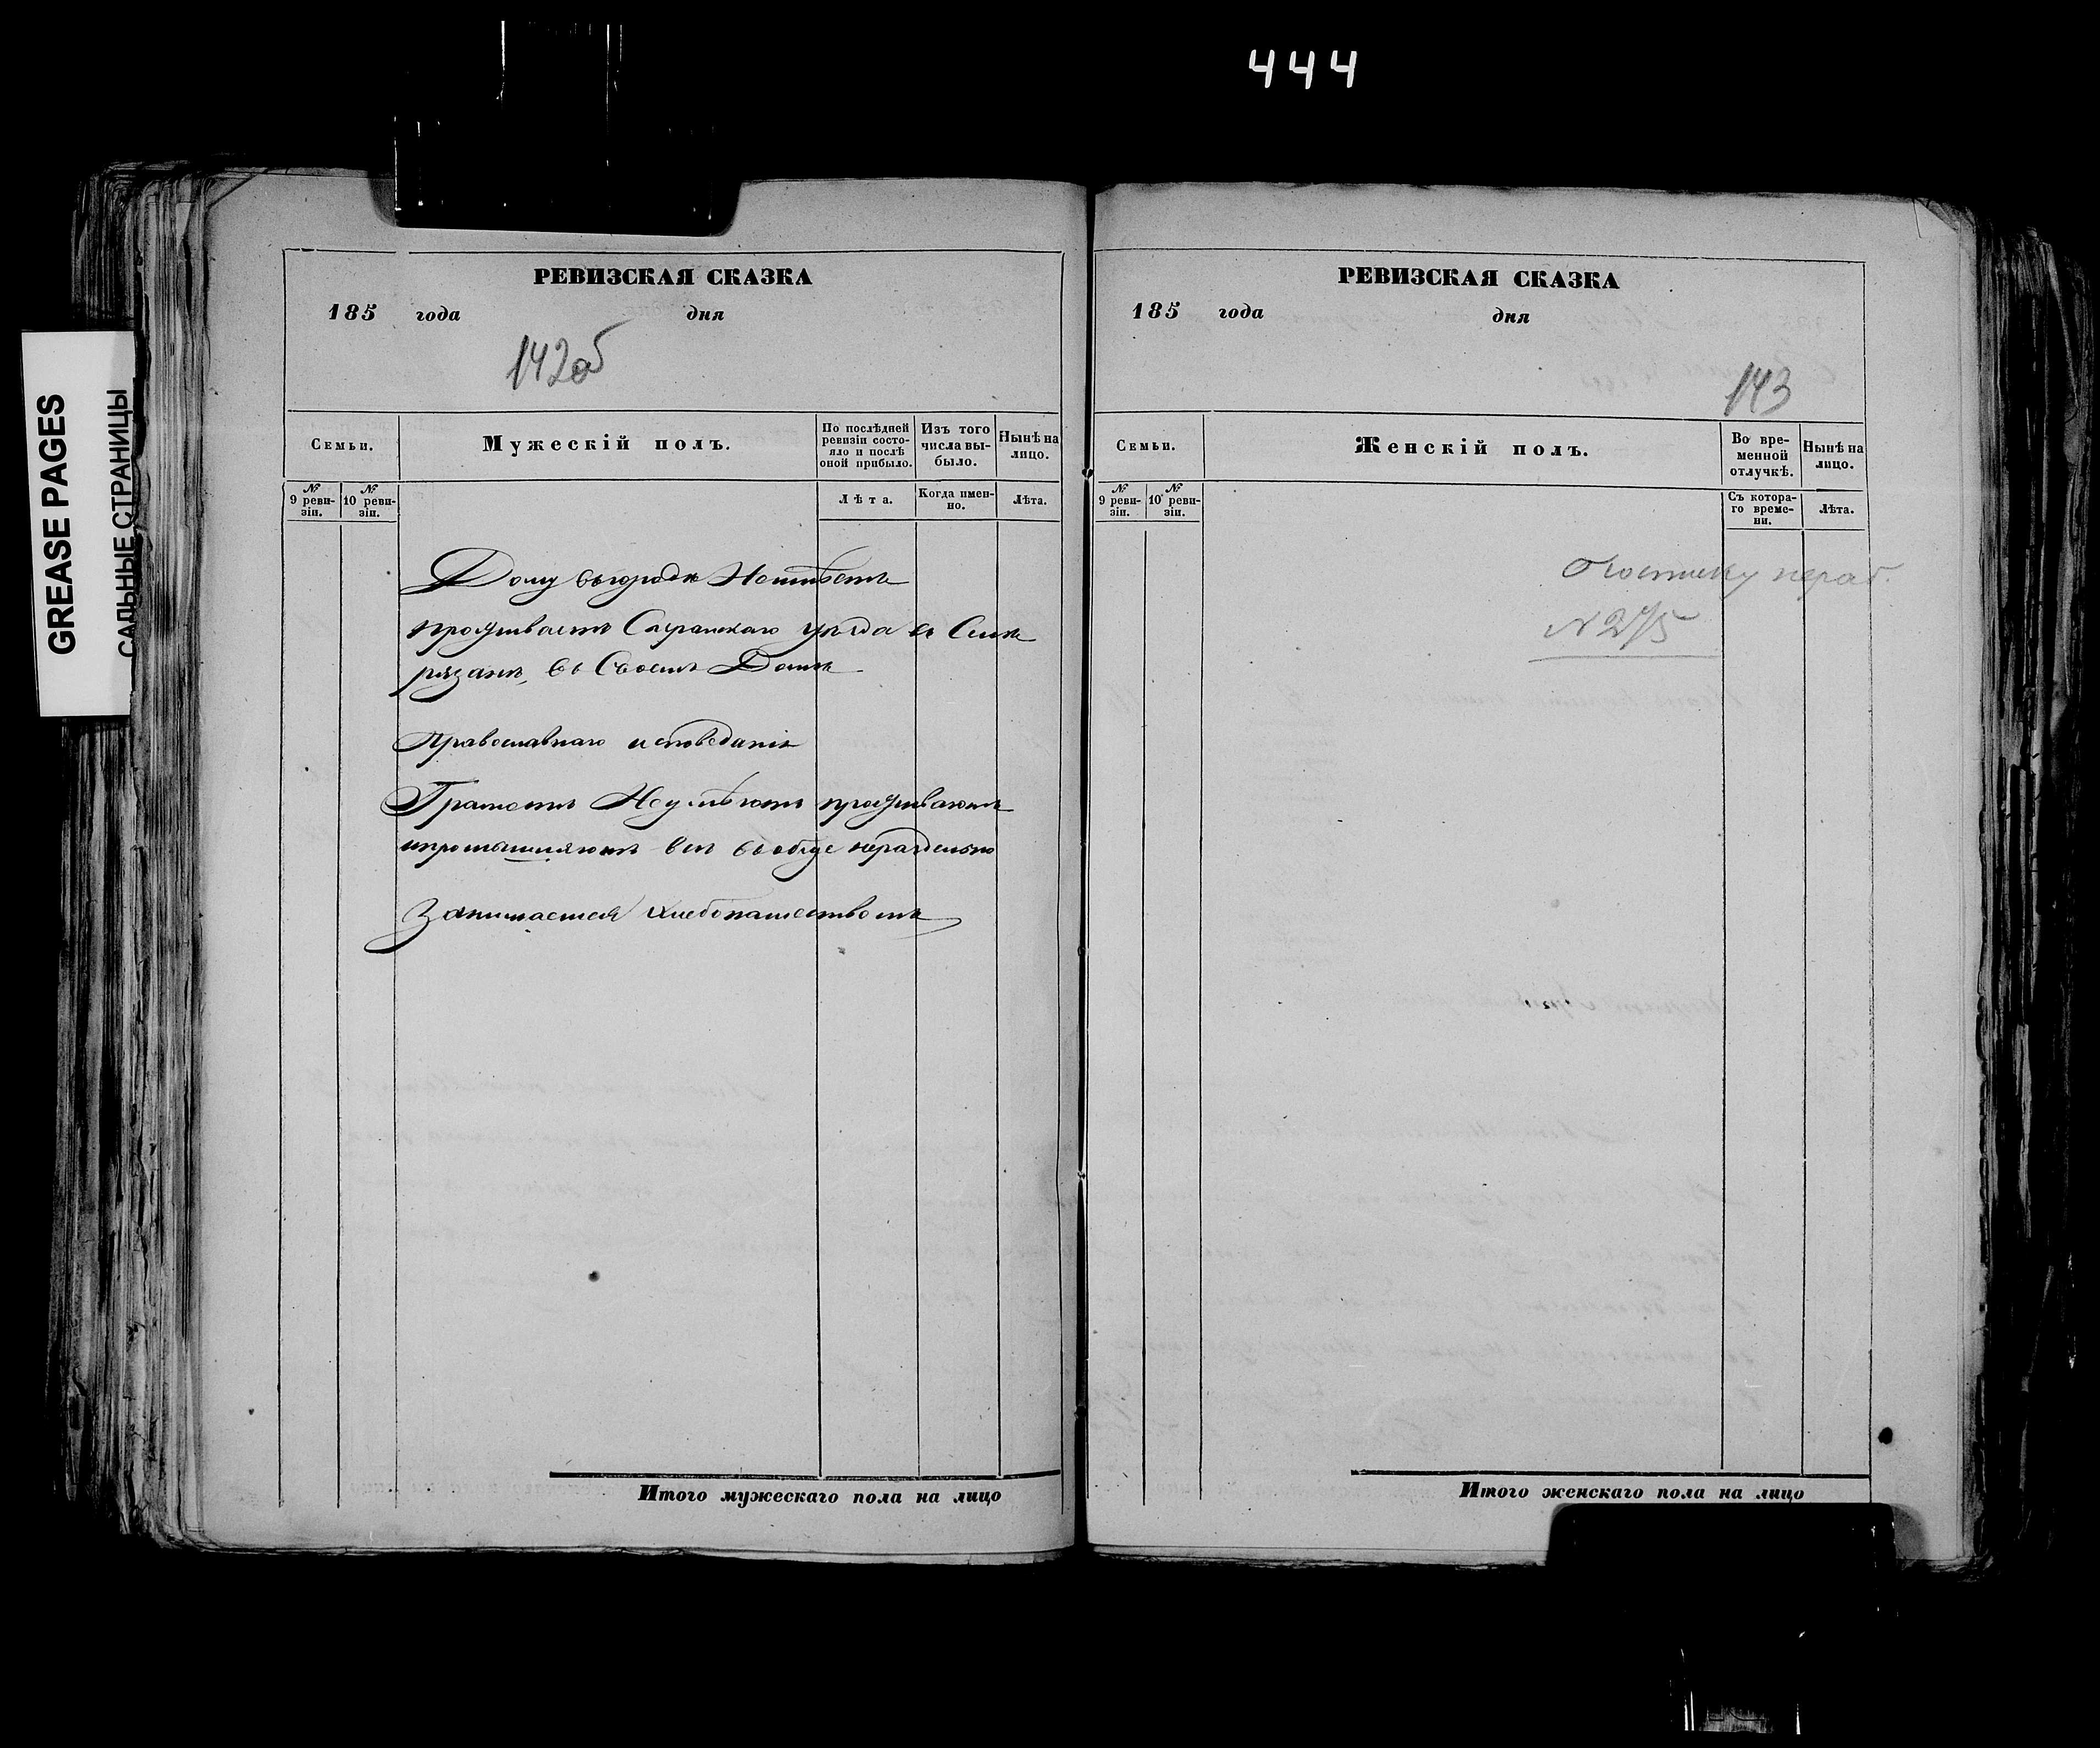 444
GREASE PAGES
САЛЬНЫЕ СТРАНИЦЫ
РЕВИЗСКАЯ СКАЗКА
185 года дня
142об
Семьи.
Мужескій полъ.
По послѣдней ревизіи состо-
яло и послѣ оной прибыло.
Изъ того числа вы-
было.
Нынѣ на лицо.
№ 9 реви-
зіи.
№ 10 реви-
зіи.
Лѣта.
Когда имен-
но.
Лѣта.
Дому въ городѣ Неимѣетъ
проживаетъ Сызранскаго уѣзда въ Селѣ
рязанѣ, въ Своемъ Домѣ
Православнаго исповеданія
Грамотѣ Неумѣютъ проживаютъ
ипромышляютъ всѣ вообще нераздельно
Занимается хлебопашествомъ
Итого мужескаго пола на лицо
РЕВИЗСКАЯ СКАЗКА
185 года дня
143
Семьи.
Женскій полъ.
Во вре-
менной отлучкѣ.
Нынѣ на лицо.
№ 9 реви-
зіи.
№ 10 реви-
зіи.
Съ котора-
го време-
ни.
Лѣта.
N 275
Итого женскаго пола на лицо